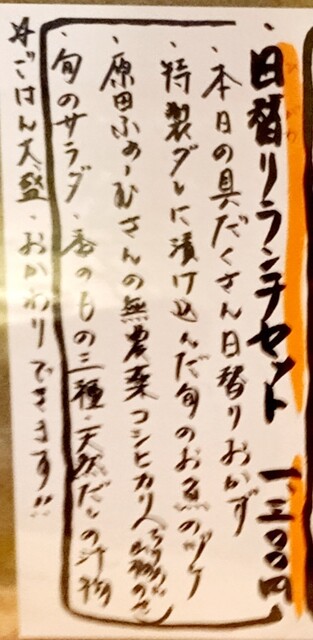 ・日替りランチセット 一、三〇〇円
ひがわ
・本日の具だくさん日替りおかず
・特製ダレに漬け込んだ旬のお魚のヅケ
・原田ふぁーむさんの無農薬コシヒカリへ
・旬のサラダ・香のもの三種・天然だしの汁物
※ごはん大盛・おかわりできます!!